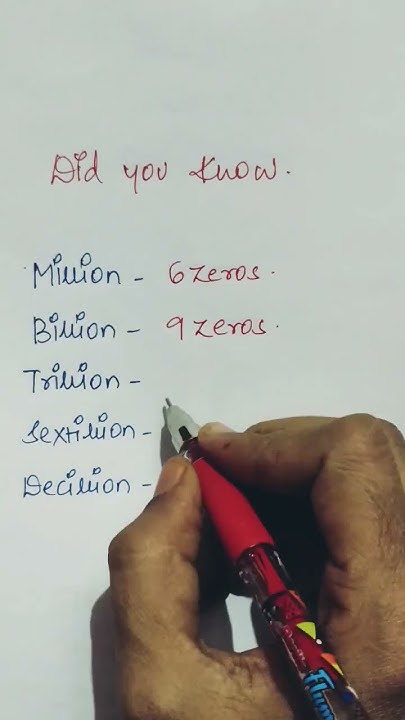 Did you know.
Million - 6 zeros.
Billion - 9 zeros.
Trillion -
Sextillion -
Decillion -